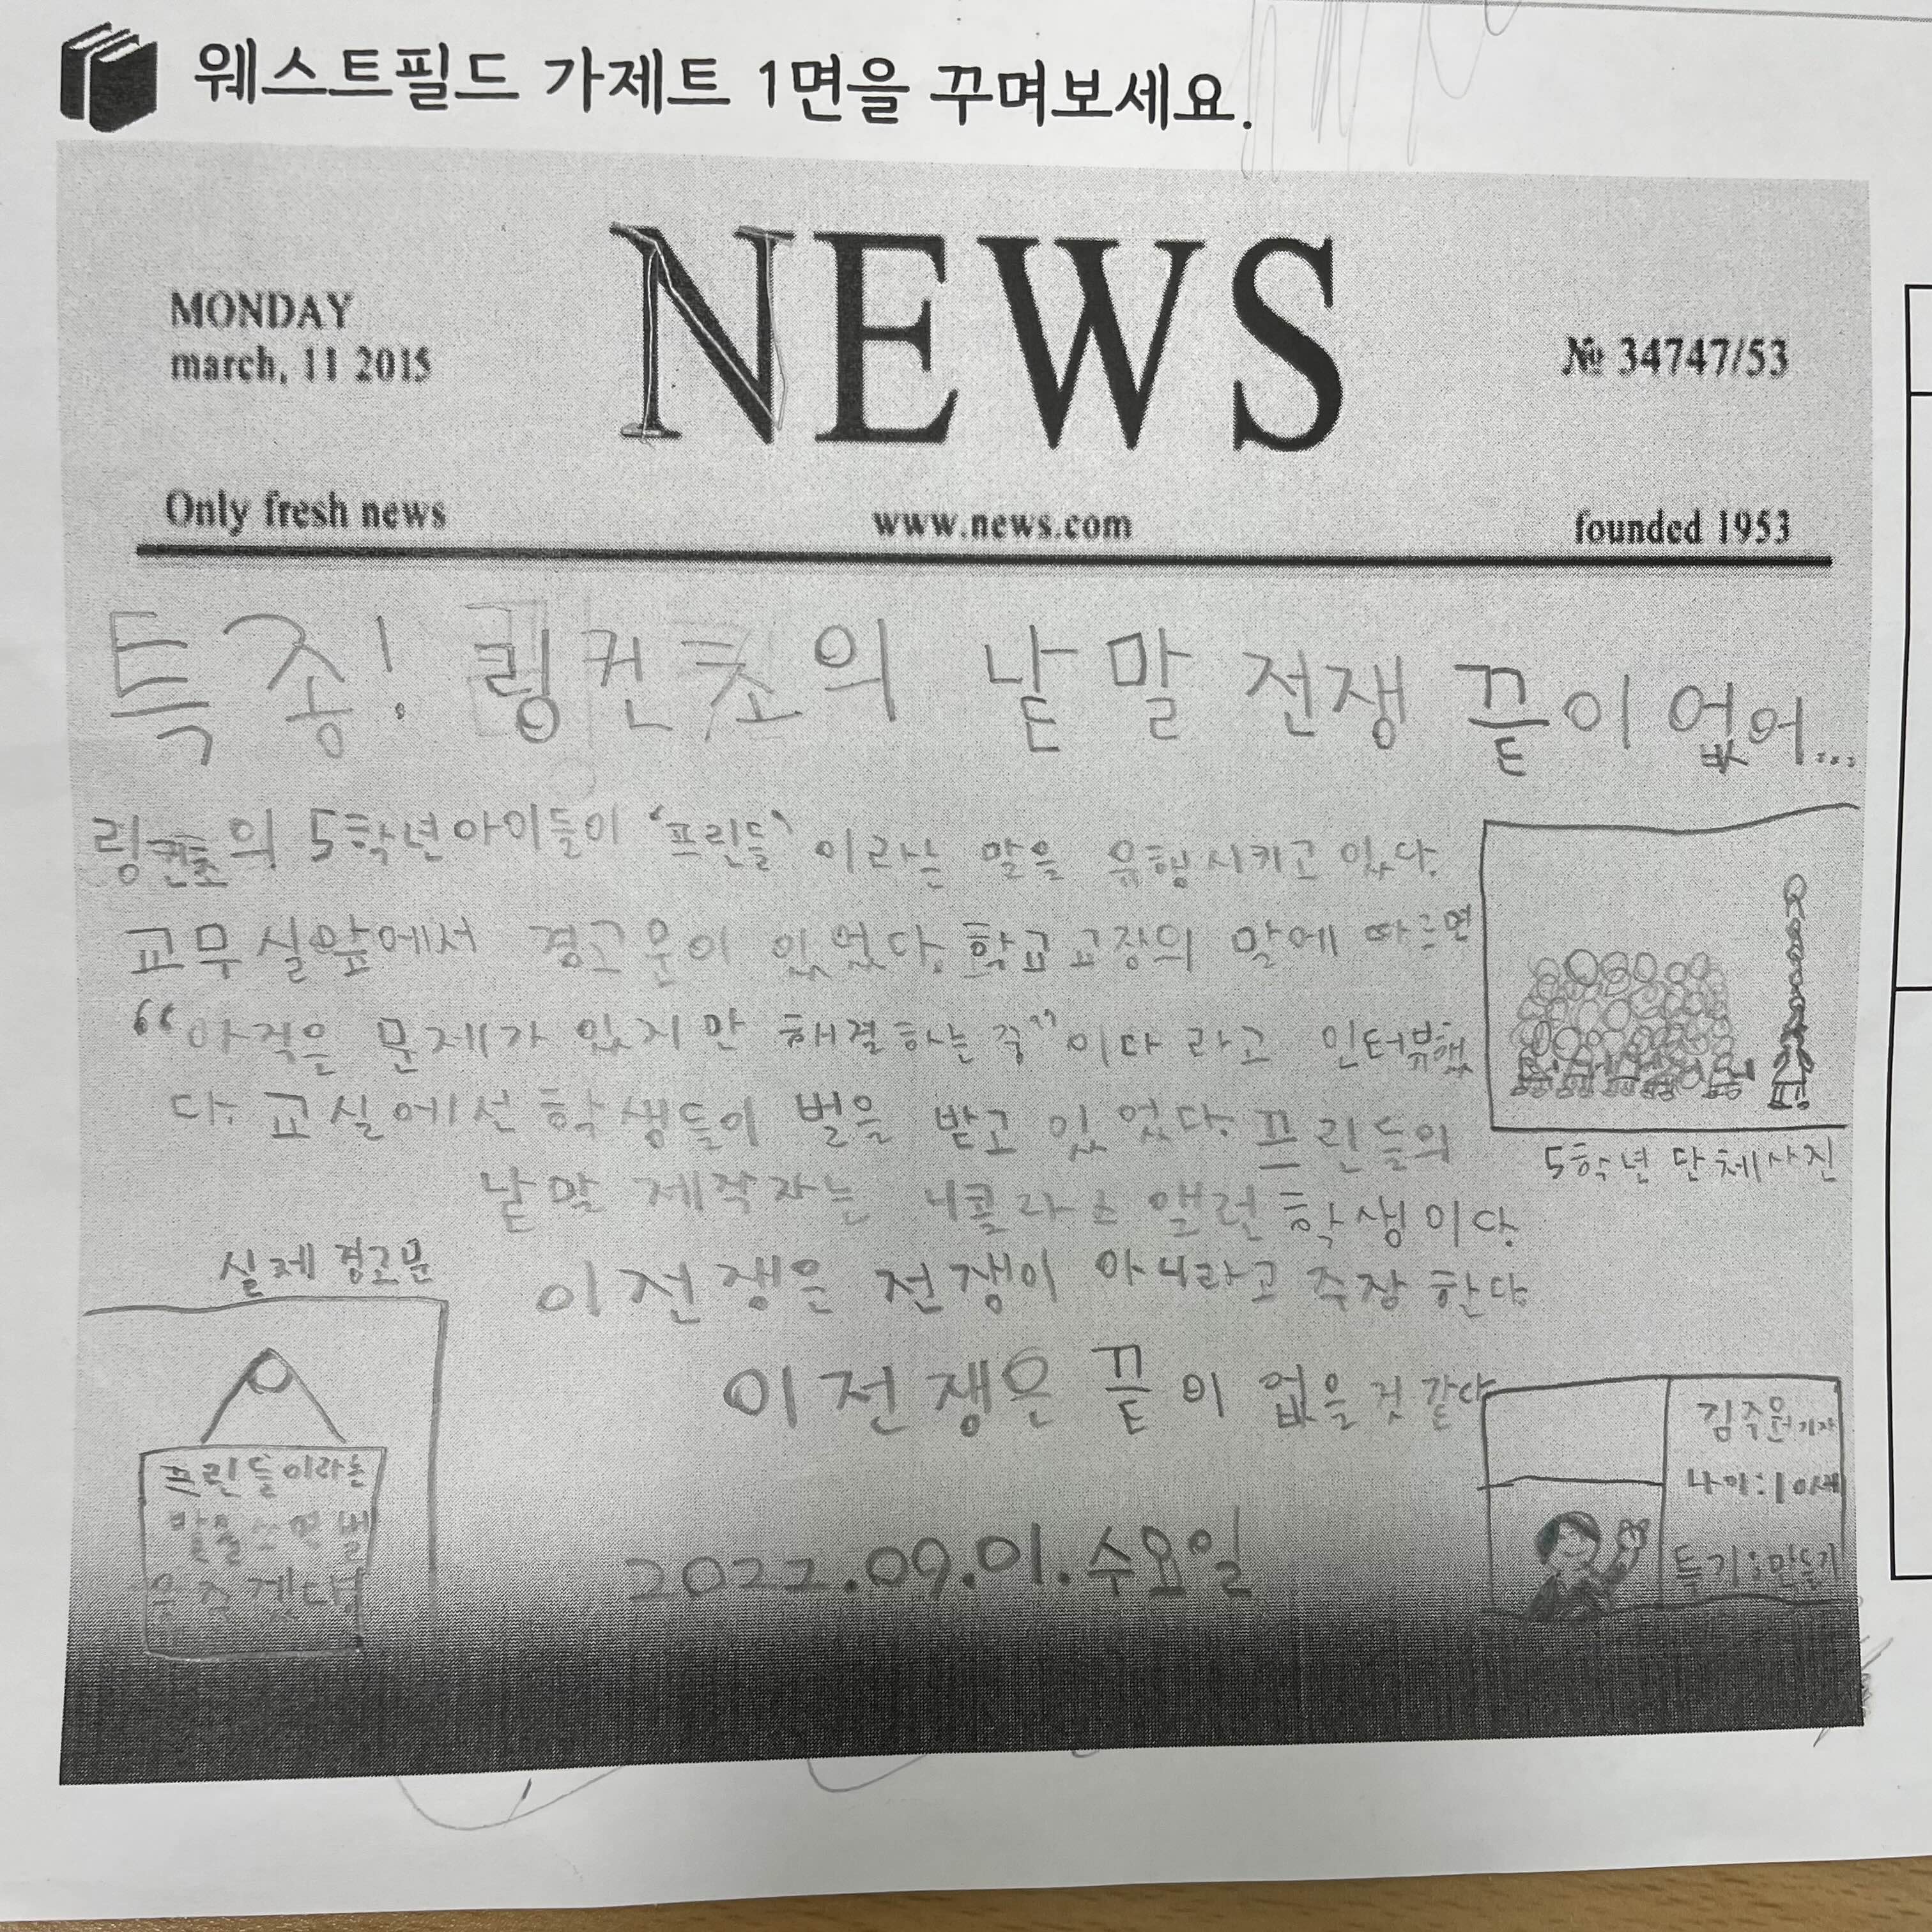 웨스트필드 가제트 1면을 꾸며보세요.
NEWS
MONDAY
march, 11 2015
№ 34747/53
Only fresh news
www.news.com
founded 1953
특종! 링컨초의 낱말 전쟁 끝이 없어...
링컨초의 5학년아이들이 '프린들' 이라는 말을 유행시키고 있다.
교무실앞에서 경고문이 있었다. 학교교장의 말에 따르면
"아직은 문제가 있지만 해결하는 중"이다 라고 인터뷰했
다. 교실에선 학생들이 벌을 받고 있었다. 프린들의
낱말 제작자는 니콜라스 앨런 학생이다.
이전쟁은 전쟁이 아니라고 주장 한다.
이전쟁은 끝이 없을 것 같다
5학년 단체사진
실제 경고문
프린들이라는
말을 쓰면 벌
을 주겠다.
2022.09.01.수요일
김주원기자
나이:10세
특기:만들기